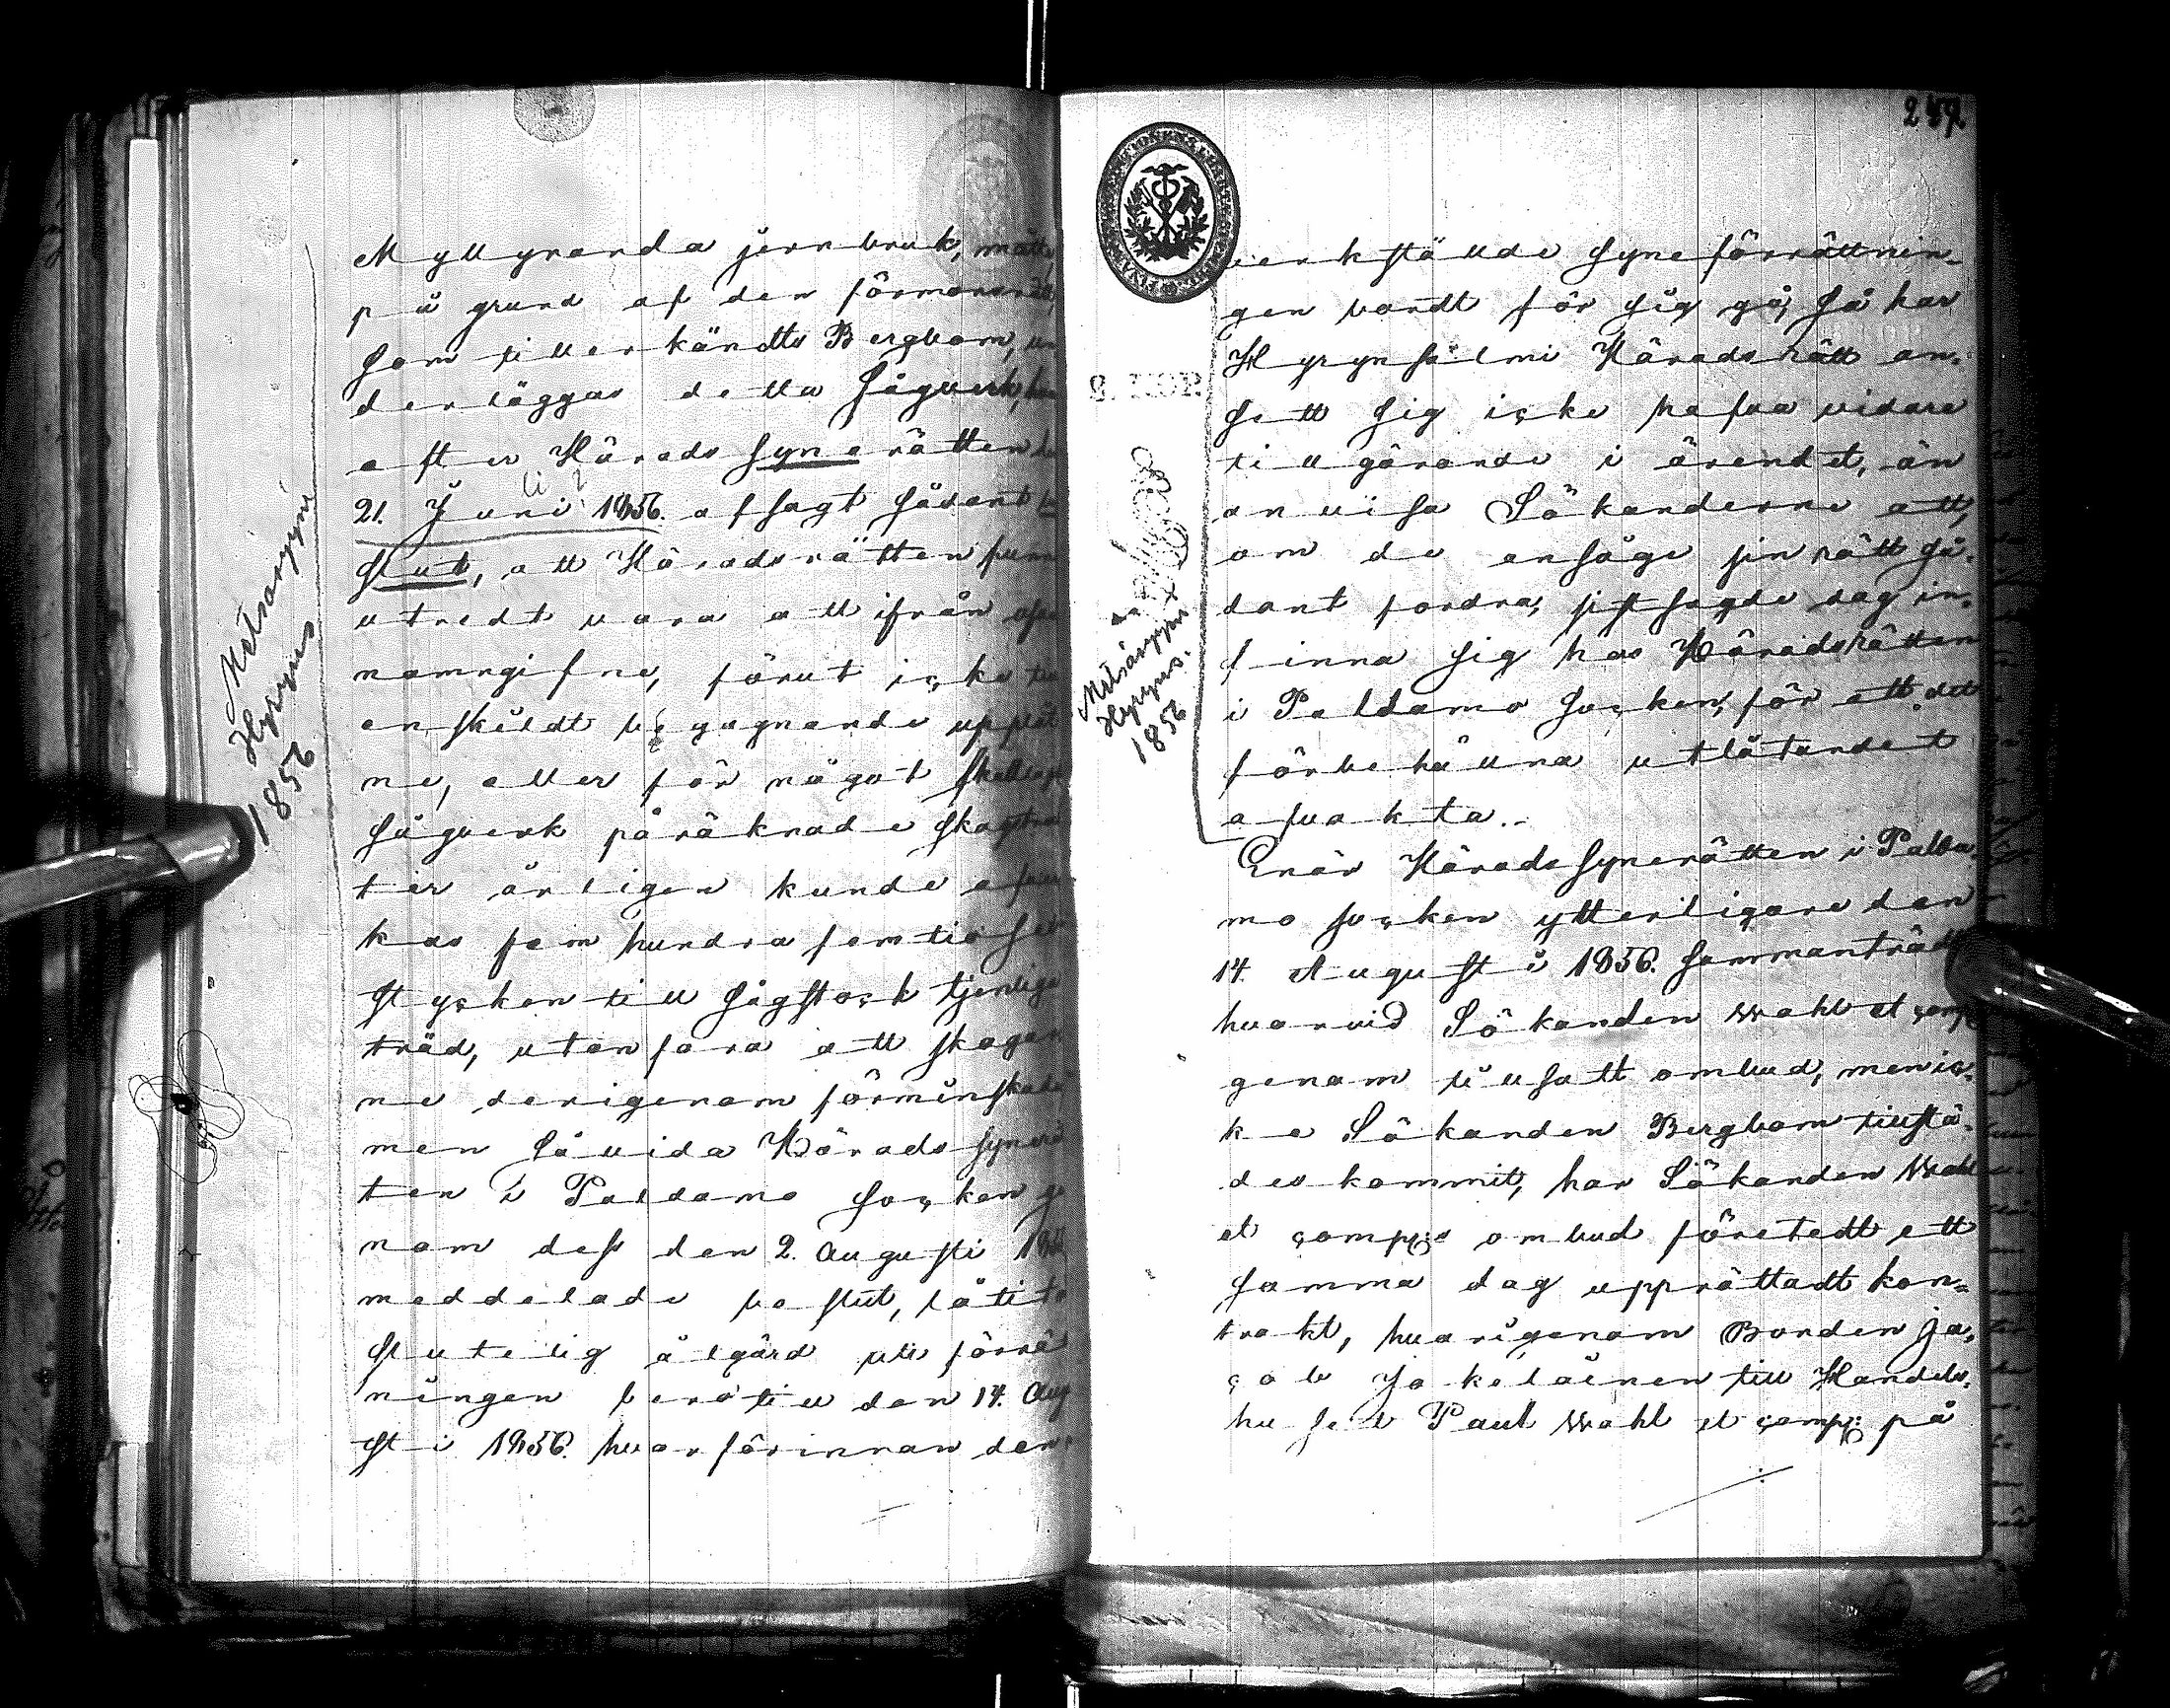 Metsäsyyni
Hyryns
1856
Myllyranda jernbruk, måtte,
på grund af den förmonsrätt,
som tillerkändts Bergbom, un
derläggas detta sågverk, har
efter Härads syne rätten den
21. Juni 1856. afsagt sådant be
slut, att Häradsrätten funne
utredt vara att ifrån ofvan
namngifne, förut icke till
enskildt begagnande upplåt
ne, eller för något skattlagdt
sågverk påräknade skogstrak
ter årligen kunde afver
kas fem hundra femtio sex
stycken till sågstock tjenlige
träd, utan fara att skogar
ne derigenom förminskades
men såvida Härads synerät
ten i Paldamo socken ge
nom dess den 2. Augusti 1856
meddelade beslut, låtit
slutelig åtgärd uti förrätt
ningen bero till den 14. Augu
sti 1856. hvarförinnan den
247.
2. KOP.
Metsäsyyni
Hyryns.
1856
verkställde syneförrättnin-
gen bordt för sig gå, så har
Hyrynsalmi Häradsrätt an-
sett sig icke hafva vidare
tillgörande i ärendet, än
anvisa Sökanderne att,
om de ansåge sin rätt så-
dant fordra, sistsagde dag in-
finna sig hos Häradsrätten
i Paldamo socken, för att det
förbehållna utlåtandet
afvakta.-
Enär Härads synerätten i Palda-
mo socken ytterligare den
14 Augusti 1856. sammanträdt
hvarvid Sökanden Wahl et comp:
genom tillsatt ombud, men ic-
ke Sökanden Bergbom tillstä-
des kommit, har Sökanden Wahl
et comp:s ombud företedt ett
samma dag upprättadt kon-
trakt, hvarigenom Bonden Ja-
cob Jokelainen till Handels-
huset Paul Wahl et comp: på